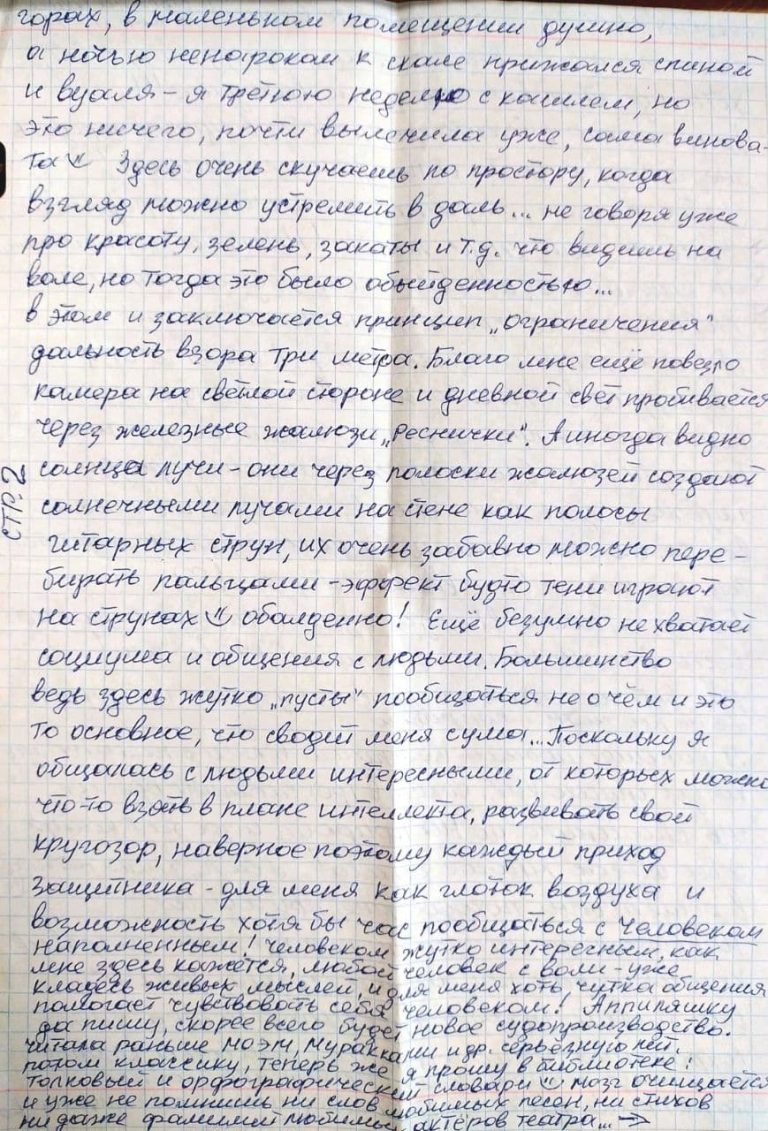 горах, в маленьком помещении душно,
а ночью ненароком к скале прижался спиной
и вуаля – я третюю неделю с кашлем, но
это ничего, почти вылечила уже, сама винова-
та Здесь очень скучаешь по простору, когда
взгляд можно устремить в даль... не говоря уже
про красоту, зелень, закаты и т.д. что видишь на
воле, но тогда это было обыденностью...
в этом и заключается принцип „ограничения"
дальность взора три метра. Благо мне ещё повезло
камера на светлой стороне и дневной свет пробивается
через железные жалюзи „Реснички". А иногда видно
солнца лучи – они через полоски жалюзей создают
солнечными лучами на стене как полосы
гитарных струн, их очень забавно можно пере-
бирать пальцами – эффект будто тени играют
на струнах обалденно! Ещё безумно не хватает
социума и общения с людьми. Большинство
ведь здесь жутко „пусты" пообщаться не о чём и это
то основное, что сводит меня сума... Поскольку я
общалась с людьми интересными, от которых можно
что-то взять в плане интеллекта, развивать свой
кругозор, наверное поэтому каждый приход
защитника – для меня как глоток воздуха и
возможность хотя бы час пообщаться с человеком
наполненным! человеком жутко интересным, как
мне здесь кажется, любой человек с воли – уже
кладезь живых мыслей, и для меня хоть чутка общения
помогает чувствовать себя человеком! Аппиляшку
да пишу, скорее всего будет новое судопроизводство.
читала раньше Моэм, Мураками и др. серьёзную лит.
потом классику, теперь же я прошу в библиотеке:
толковый и орфографический словари мозг очищается
и уже не помнишь ни слов любимых песен, ни стихов
ни даже фамилий любимых актёров театра... →
СТР.2